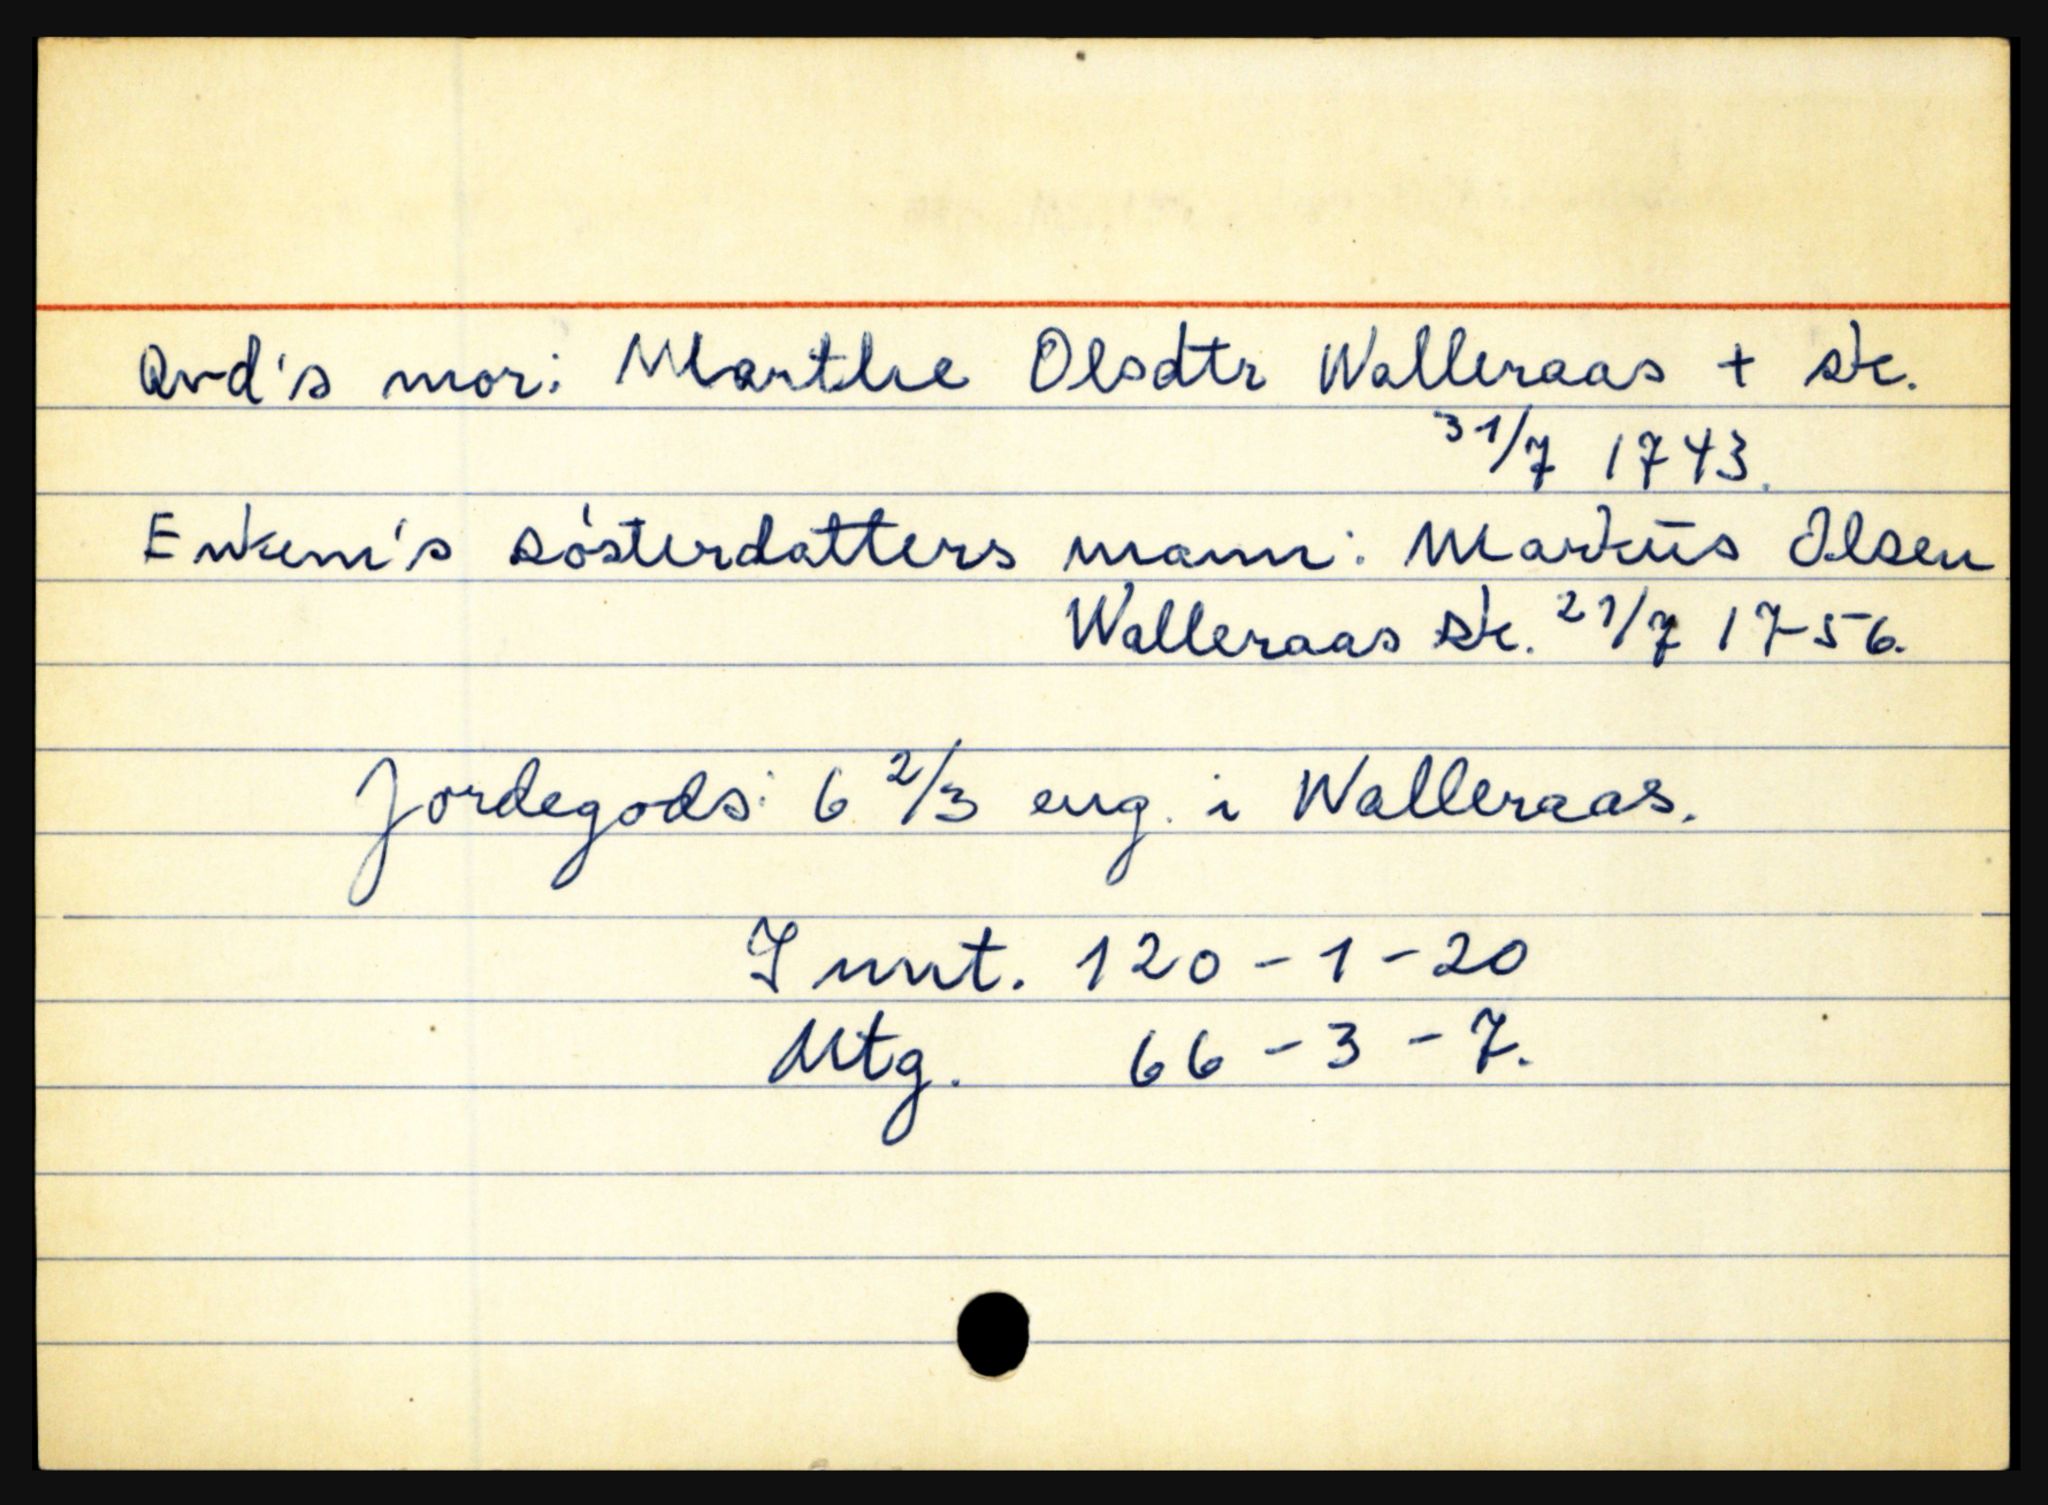 Avd's mor: Marthe Olsdtr Walleraas + sk.
31/7 1743.
Enkem's sósterdatters mann: Markus Olsen
Walleraas sk. 21/7 1756.
Jordegods: 6 2/3 eng. i Walleraas.
Innt. 120 - 1 - 20
Utg. 66 - 3 - 7.